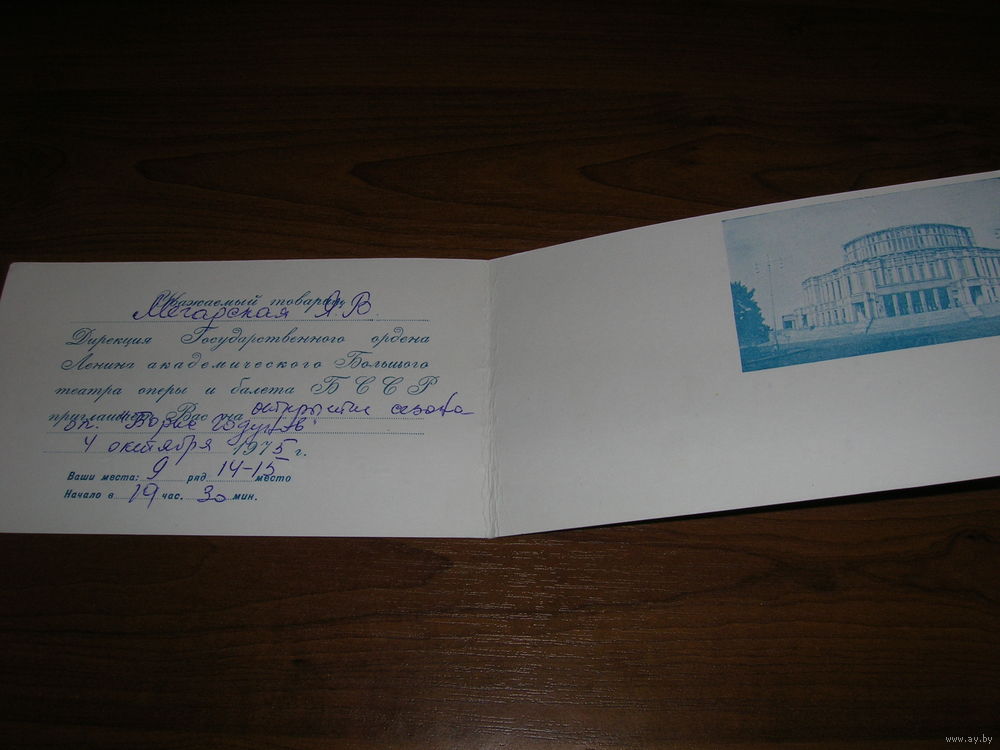 Уважаемый товарищ
Мегарская Я. В.
Дирекция Государственного ордена
Ленина академического Большого
театра оперы и балета БССР
приглашает Вас на открытие сезона
оп. "Борис Годунов"
4 октября 1975 г.
Ваши места: 9 ряд 14-15 место
Начало в 19 час. 30 мин.
www.ay.by